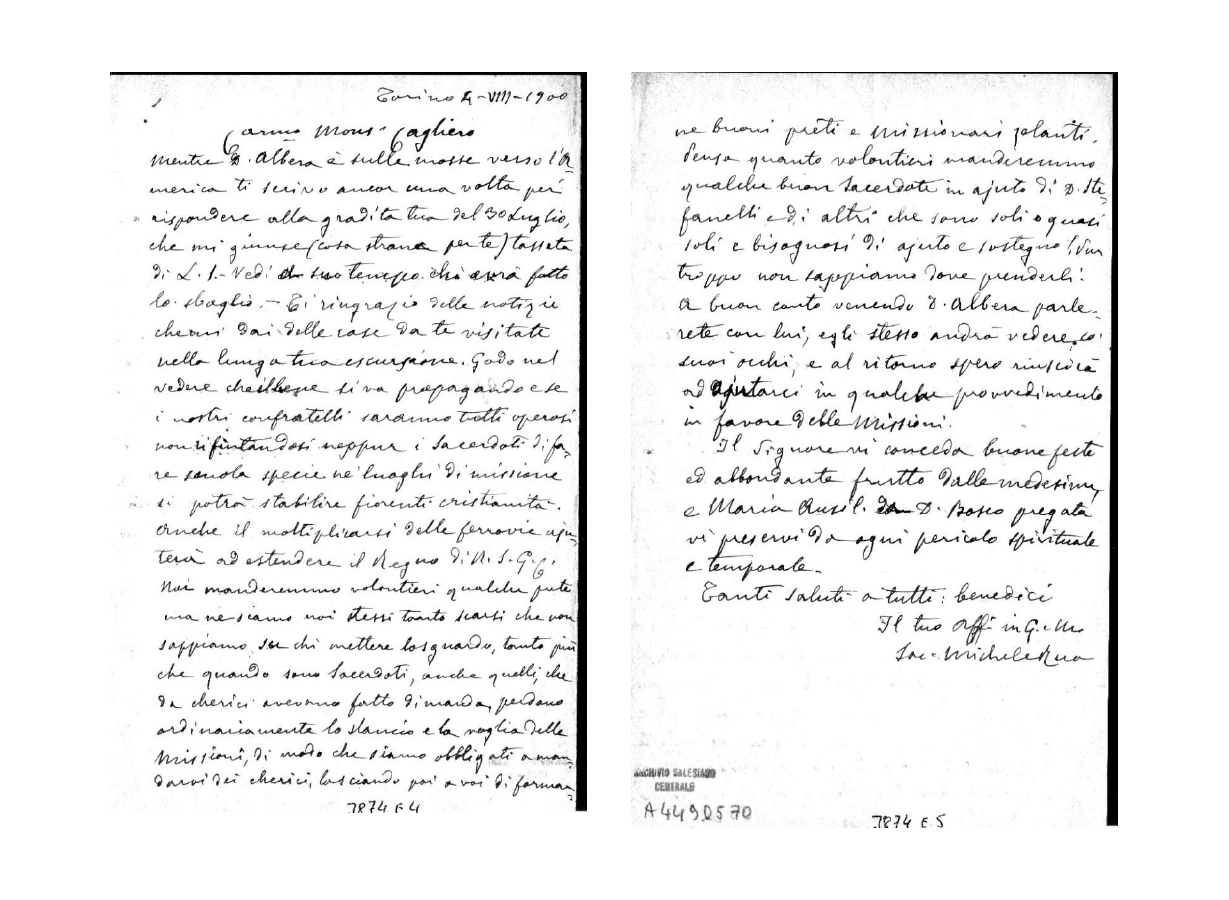 Torino 4-VIII-1900
Carmo Mons. Cagliero
Mentre D. Albera è sulle mosse verso l'A-
merica ti scrivo ancor una volta per
rispondere alla gradita tua del 30 Luglio,
che mi giunse (cosa strana per te) tassata
di L. 1.- Vedi suo tempo chi avrà fatto
lo sbaglio. - Ti ringrazio delle notizie
che mi dai delle case da te visitate
nella lunga tua escursione. Godo nel
vedere che il bene si va propagando e se
i nostri confratelli saranno tutti operosi
non rifiutandosi neppur i Sacerdoti di fa-
re scuola specie ne' luoghi di missione
si potrà stabilire fiorenti cristianità.
Anche il moltiplicarsi delle ferrovie aju-
terà ad estendere il Regno di N. S. G. C.
Noi manderemmo volontieri qualche prete
ma ne siamo noi stessi tanto scarsi che non
sappiamo su chi mettere lo sguardo, tanto più
che quando sono Sacerdoti, anche quelli, che
da cherici avevano fatto dimanda, perdono
ordinariamente lo slancio e la voglia delle
Missioni, di modo che siamo obbligati a man-
darvi dei cherici, lasciando poi a voi di formar-
7874 E 4
ne buoni preti e missionari zelanti.
Pensa quanto volontieri manderemmo
qualche buon Sacerdote in ajuto di D. Ste-
fanelli e di altri che sono soli o quasi
soli e bisognosi di ajuto e sostegno! Pur
troppo non sappiamo dove prenderli!
A buon conto venendo D. Albera parle-
rete con lui, egli stesso andrà vedere co'
suoi occhi, e al ritorno spero riuscirà
ad ajutarci in qualche provvedimento
in favore delle Missioni.
Il Signore vi conceda buone feste
ed abbondante frutto dalle medesime,
e Maria Ausil. da D. Bosco pregata
vi preservi da ogni pericolo spirituale
e temporale.
Tanti saluti a tutti: benedici
Il tuo aff. in G. e M.
Sac. Michele Rua
ARCHIVIO SALESIANO
CENTRALE
A4490570
7874 E 5